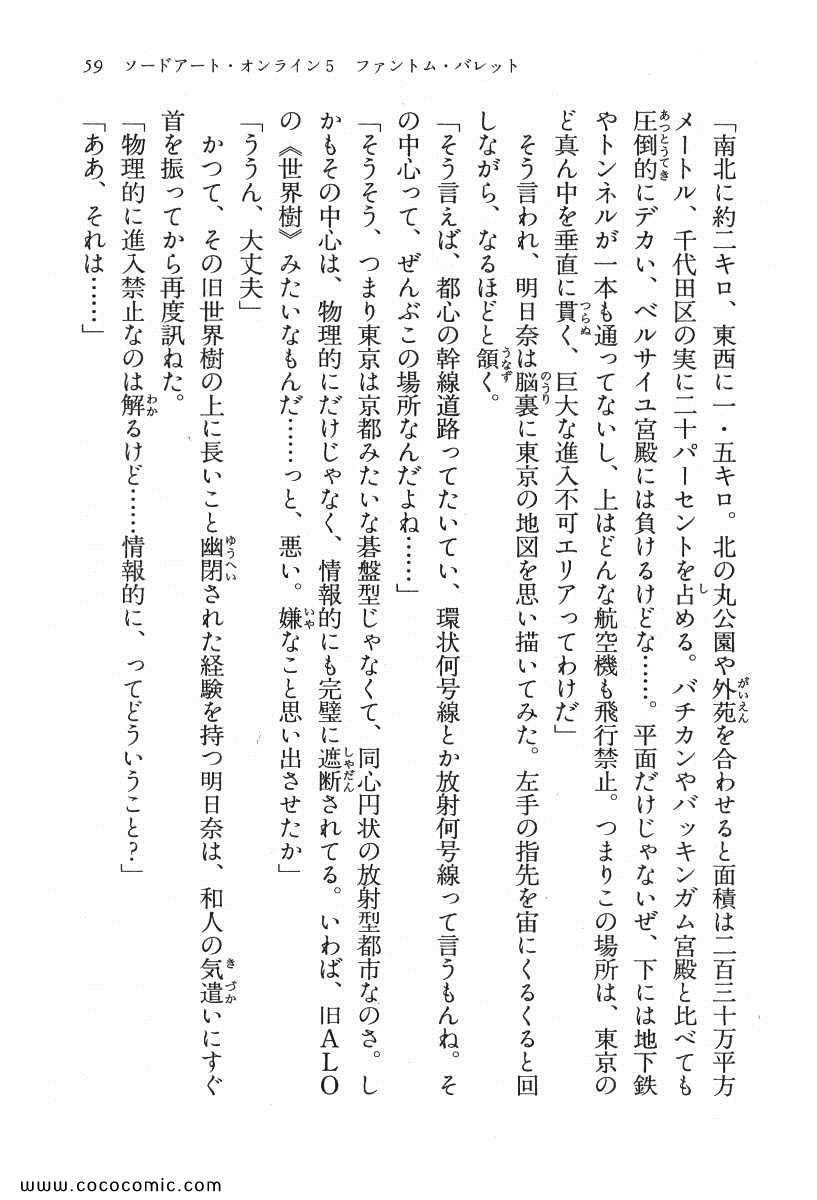 59　ソードアート・オンライン5　ファントム・バレット
「南北に約二キロ、東西に一・五キロ。北の丸公園や外苑を合わせると面積は二百三十万平方
メートル、千代田区の実に二十パーセントを占める。バチカンやバッキンガム宮殿と比べても
圧倒的にデカい、ベルサイユ宮殿には負けるけどな……。平面だけじゃないぜ、下には地下鉄
やトンネルが一本も通ってないし、上はどんな航空機も飛行禁止。つまりこの場所は、東京の
ど真ん中を垂直に貫く、巨大な進入不可エリアってわけだ」
　そう言われ、明日奈は脳裏に東京の地図を思い描いてみた。左手の指先を宙にくるくると回
しながら、なるほどと頷く。
「そう言えば、都心の幹線道路ってたいてい、環状何号線とか放射何号線って言うもんね。そ
の中心って、ぜんぶこの場所なんだよね……」
「そうそう、つまり東京は京都みたいな碁盤型じゃなくて、同心円状の放射型都市なのさ。し
かもその中心は、物理的にだけじゃなく、情報的にも完璧に遮断されてる。いわば、旧ＡＬＯ
の《世界樹》みたいなもんだ……っと、悪い。嫌なこと思い出させたか」
「ううん、大丈夫」
　かつて、その旧世界樹の上に長いこと幽閉された経験を持つ明日奈は、和人の気遣いにすぐ
首を振ってから再度訊ねた。
「物理的に進入禁止なのは解るけど……情報的に、ってどういうこと？」
「ああ、それは……」
www.cococomic.com